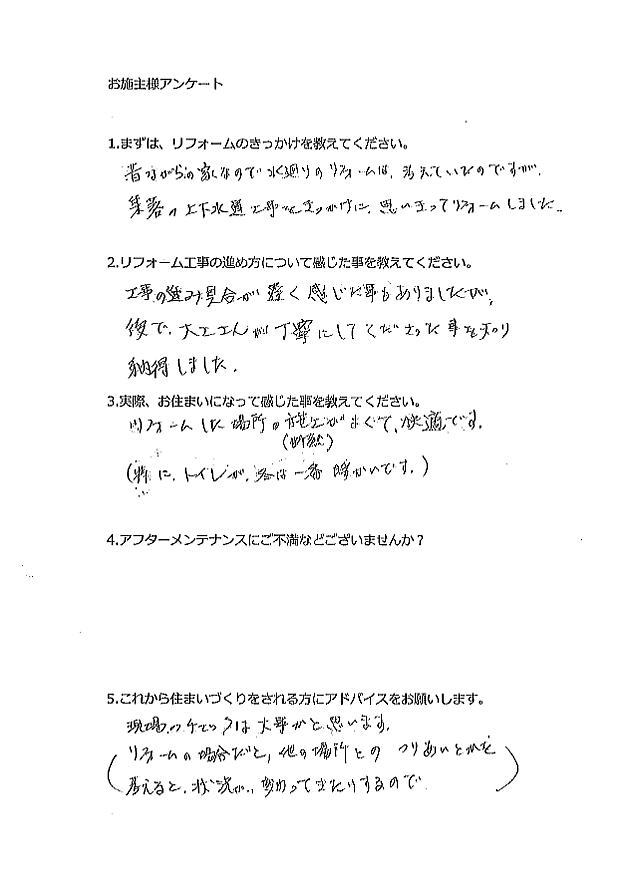 お施主様アンケート
1.まずは、リフォームのきっかけを教えてください。
昔ながらの家なので水廻りのリフォームは、考えていたのですが、
集落の上下水道工事をきっかけに、思いきってリフォームしました。
2.リフォーム工事の進め方について感じた事を教えてください。
工事の進み具合が遅く感じた事もありましたが、
後で、大工さんが丁寧にしてくださった事を知り
納得しました。
3.実際、お住まいになって感じた事を教えてください。
リフォームした場所の施工がよくて、快適です。
(断熱)
(特に、トイレが、冬は一番暖かいです。)
4.アフターメンテナンスにご不満などございませんか？
5.これから住まいづくりをされる方にアドバイスをお願いします。
現場のチェックは大事かと思います。
(リフォームの場合だと、他の場所とのつりあいとかを
考えると、状況が、変わってきたりするので)